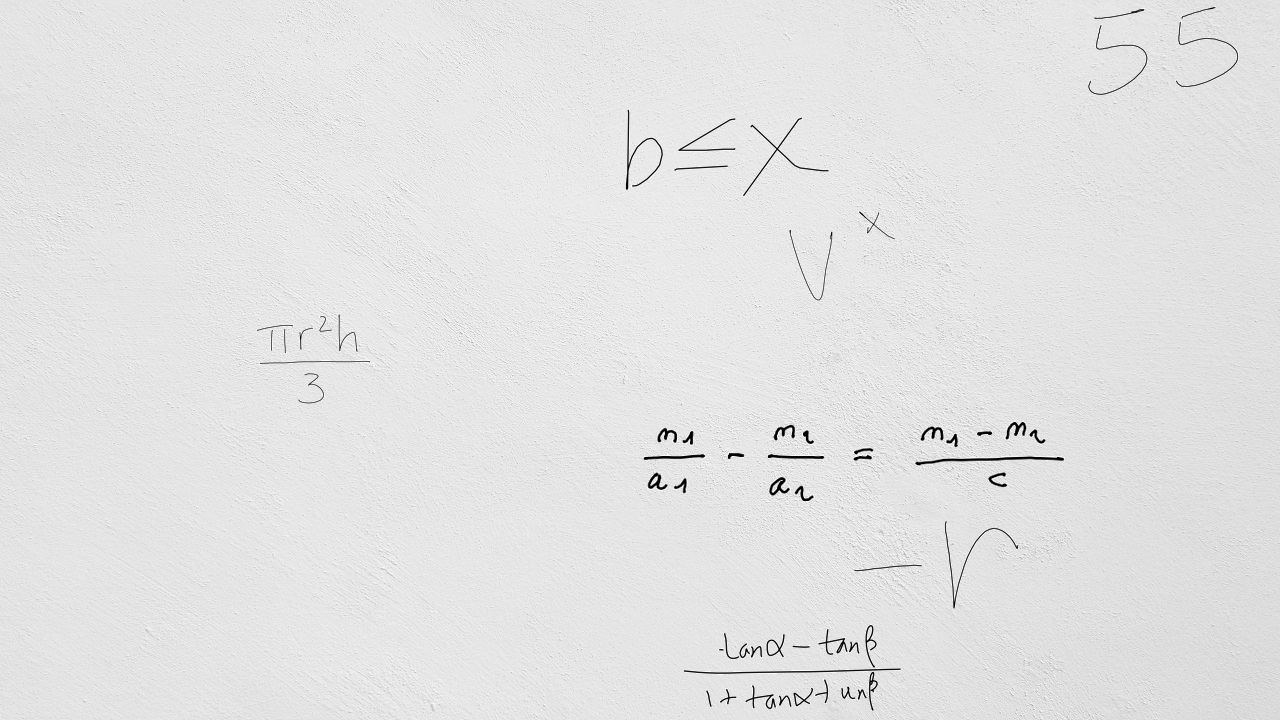 55
b ≤ x
v^x
πr²h / 3
n₁/a₁ - n₂/a₂ = (n₁ - n₂)/c
-r
(tanα - tanβ) / (1 + tanα tanβ)